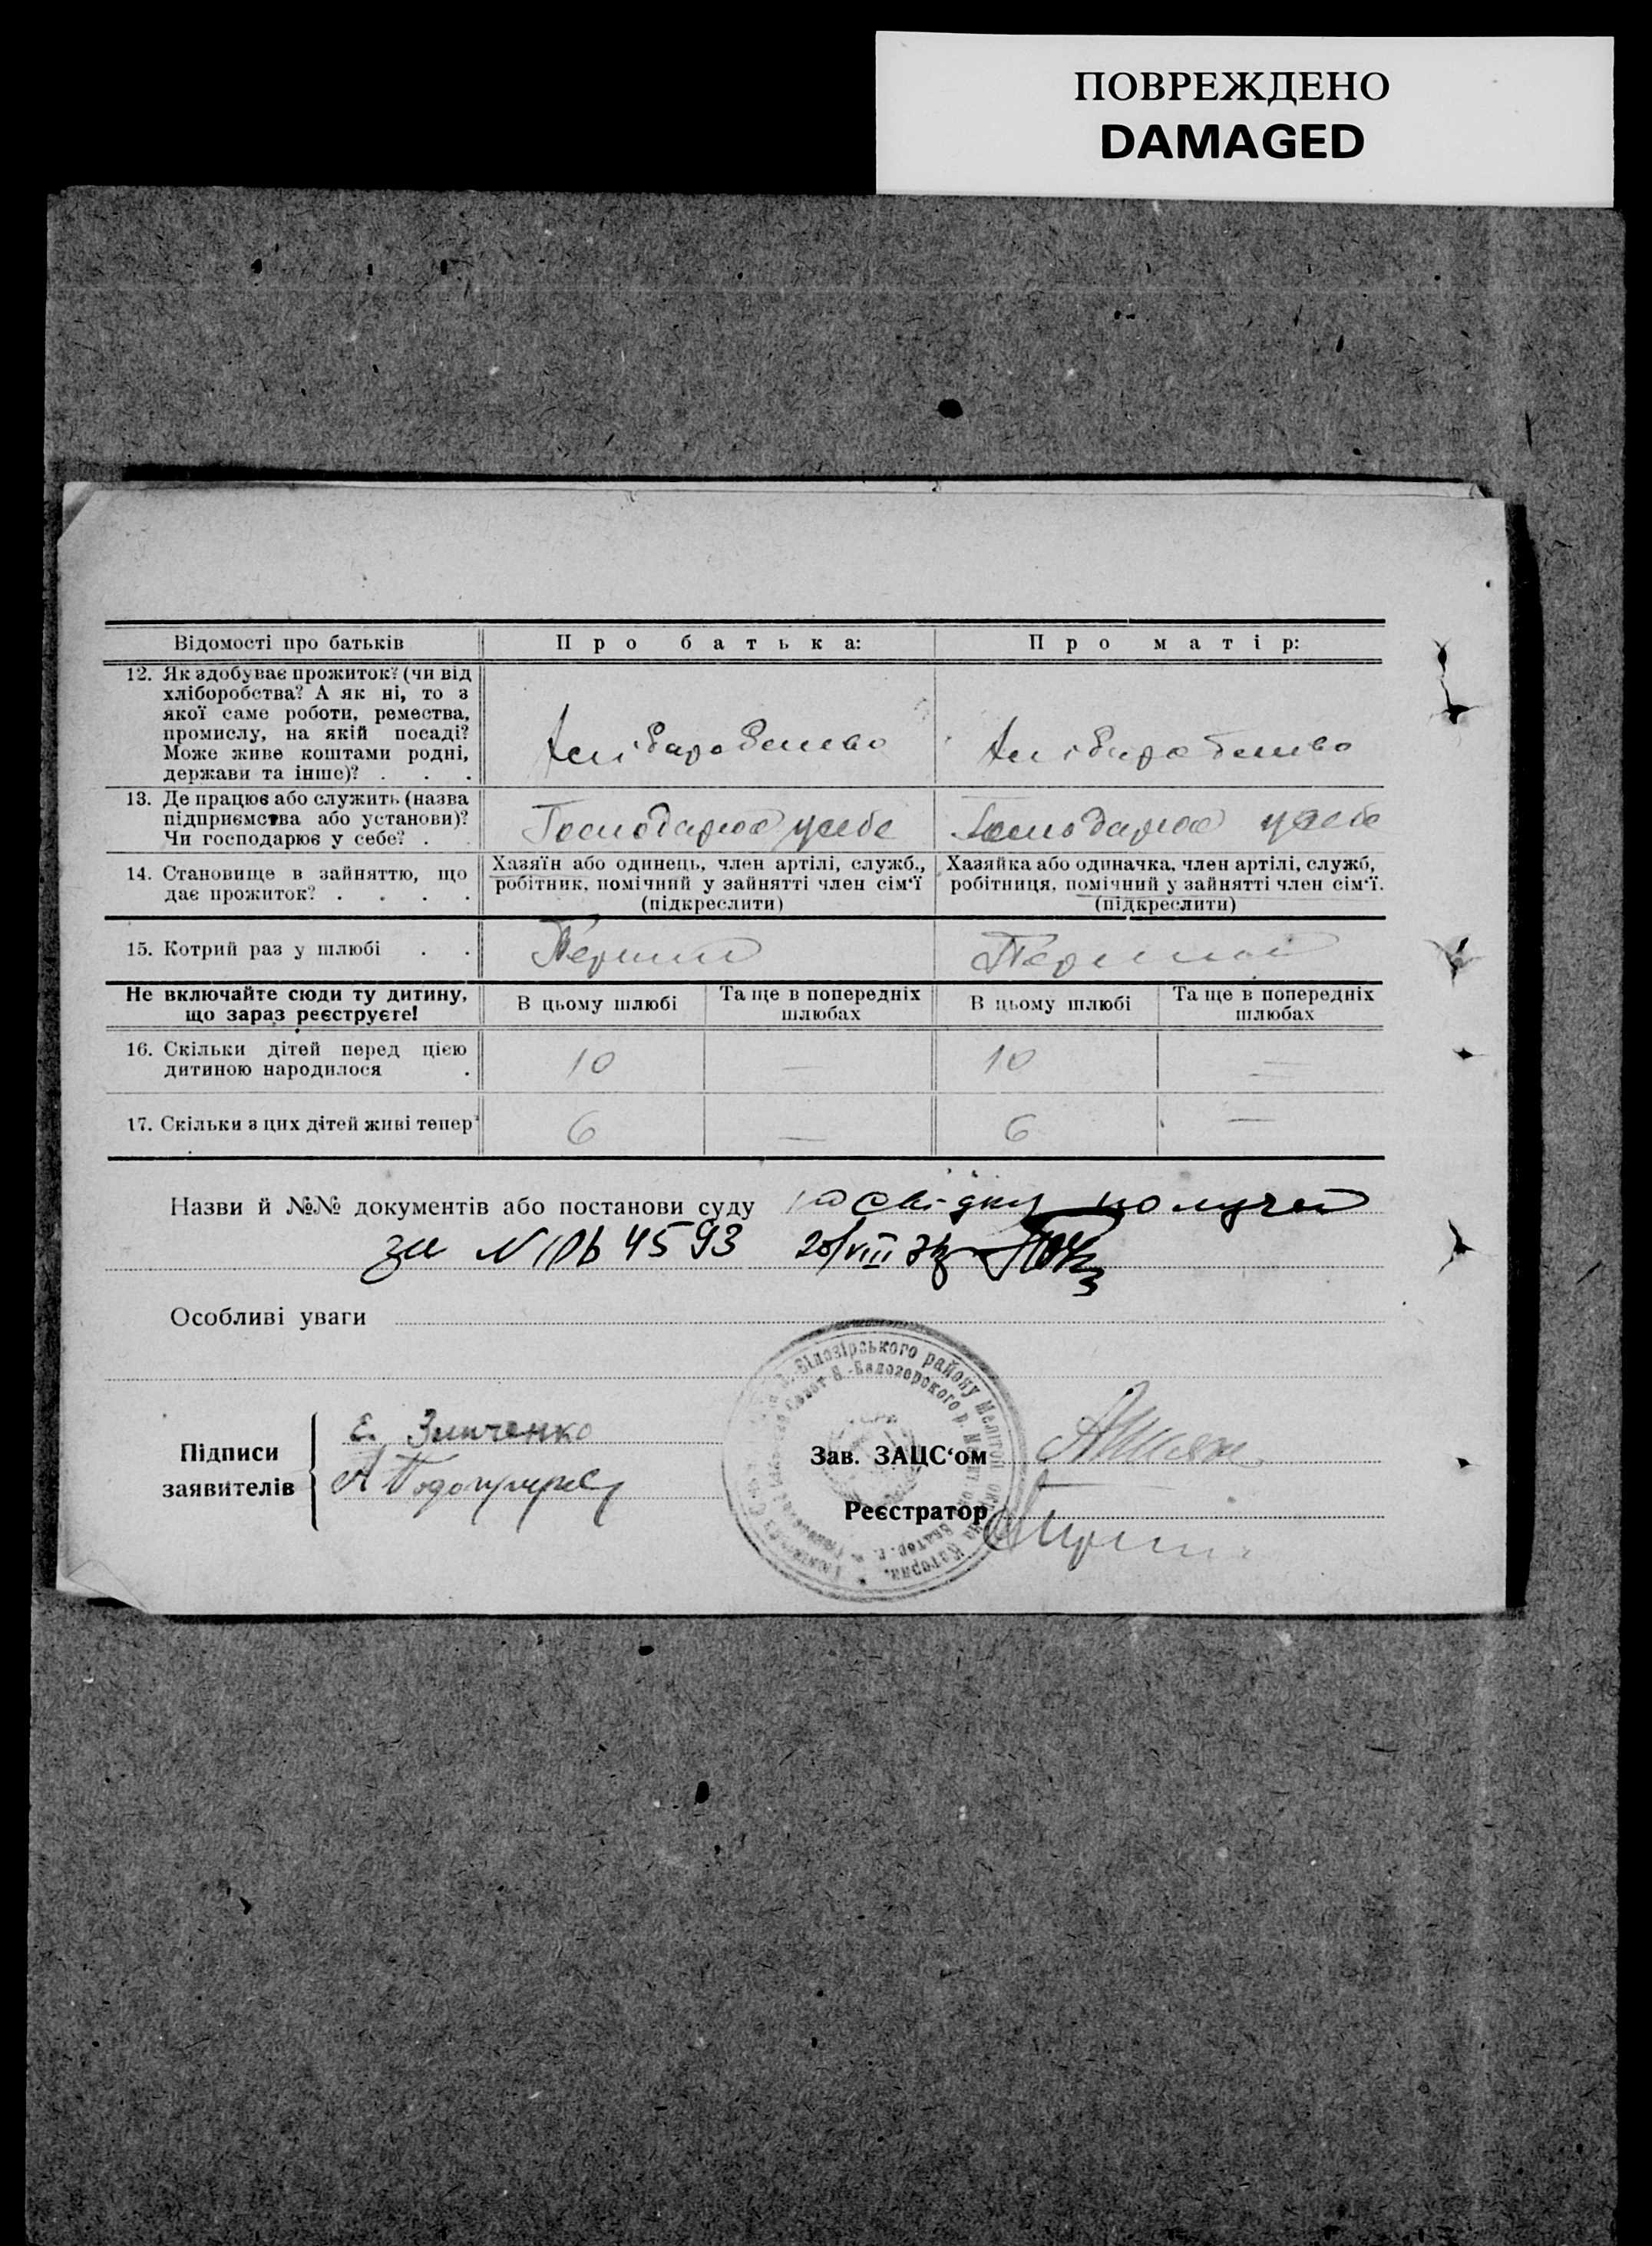 ПОВРЕЖДЕНО
DAMAGED
Відомості про батьків
Про батька:
Про матір:
12. Як здобуває прожиток? (чи від
хліборобства? А як ні, то з
якої саме роботи, ремества,
промислу, на якій посаді?
Може живе коштами родні,
держави та інше)? . . .
Хліборобство
Хліборобство
13. Де працює або служить (назва
підприємства або установи)?
Чи господарює у себе? .
Господарює у себе
Господарює у себе
14. Становище в зайняттю, що
дає прожиток? . . . .
Хазяїн або одинець, член артілі, служб.,
робітник, помічний у зайнятті член сім'ї
(підкреслити)
Хазяйка або одиначка, член артілі, служб,
робітниця, помічний у зайнятті член сім'ї.
(підкреслити)
15. Котрий раз у шлюбі . .
Перший
Перший
Не включайте сюди ту дитину,
що зараз реєструєте!
В цьому шлюбі
Та ще в попередніх
шлюбах
В цьому шлюбі
Та ще в попередніх
шлюбах
16. Скільки дітей перед цією
дитиною народилося .
10
—
10
—
17. Скільки з цих дітей живі тепер?
6
—
6
—
Назви й №№ документів або постанови суду посвідку получив
за № 4593 20/VIII
Особливі уваги
Білозірського району Меліто
Белозерского р.
Підписи
заявителів
Е. Зинченко
Зав. ЗАЦС'ом
Реєстратор